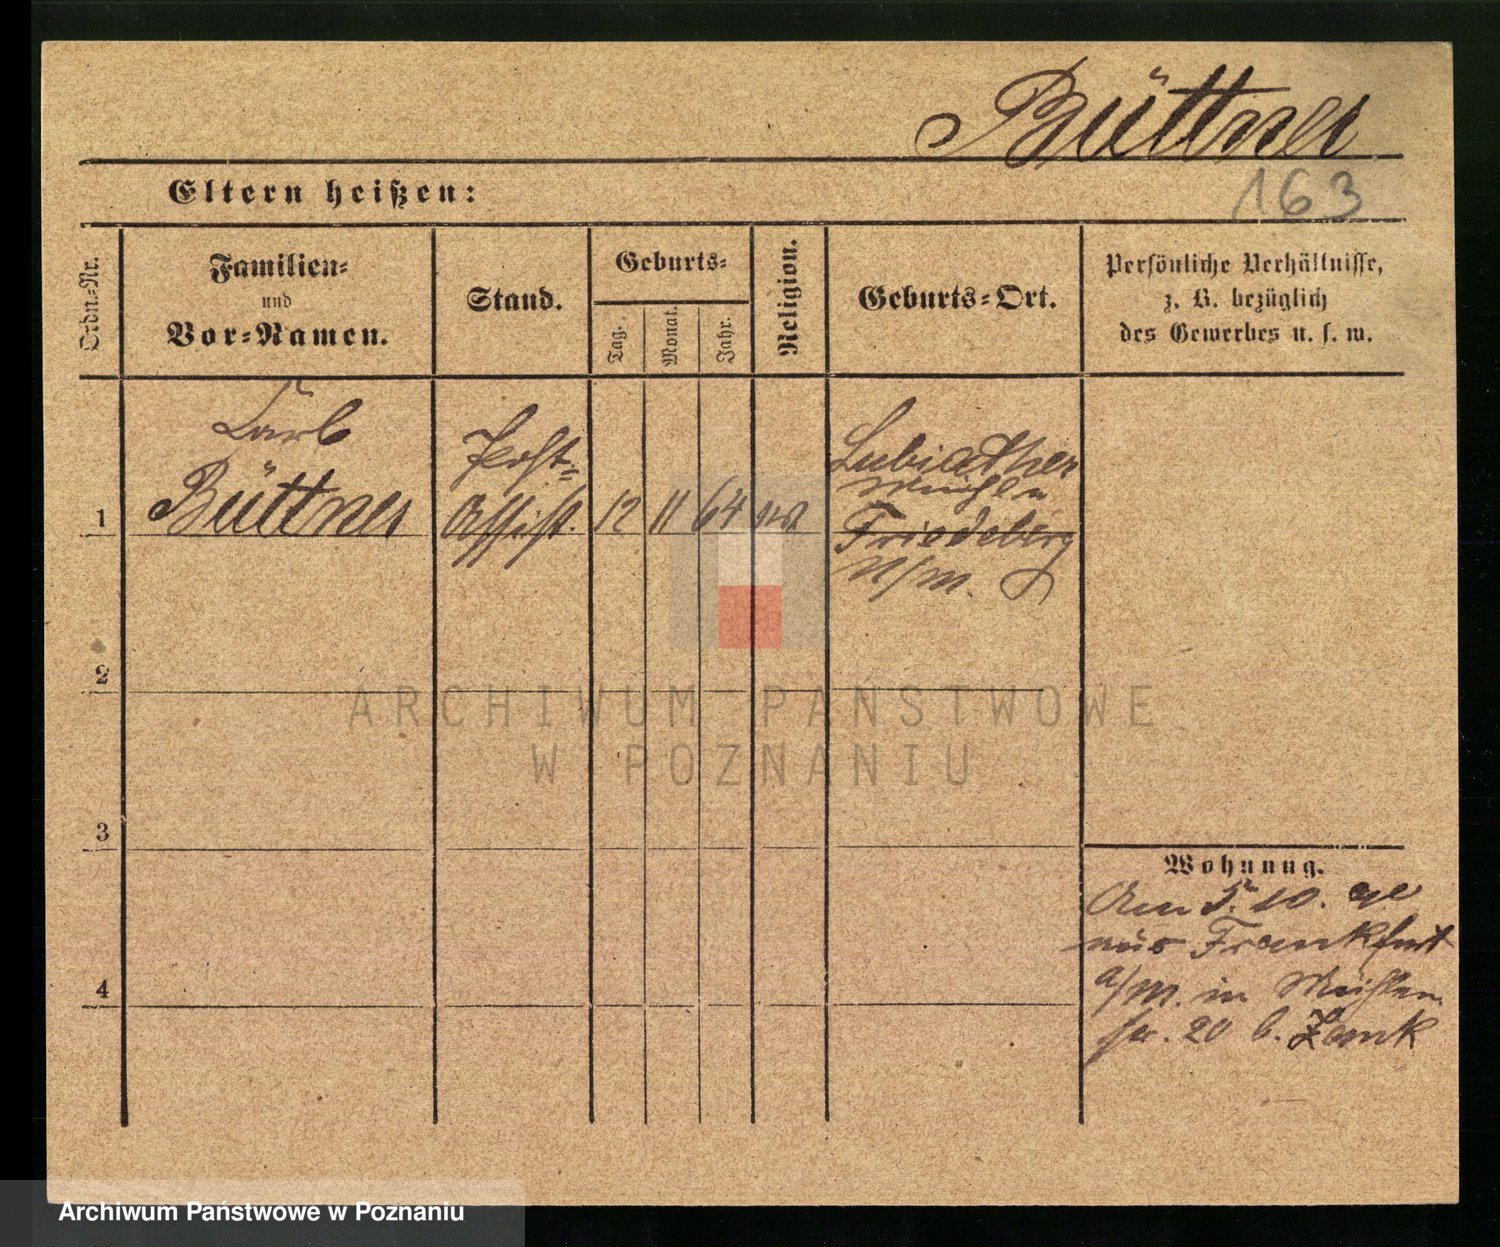 Büttner
163
Eltern heißen:
Ordn.-Nr.
Familien-
und
Vor-Namen.
Stand.
Geburts-
Tag.
Monat.
Jahr.
Religion.
Geburts-Ort.
Persönliche Verhältnisse,
z. B. bezüglich
des Gewerbes u. s. w.
1
Büttner
Post-
Assist.
12
11
64
Lubiather
Friedeberg
N/M.
2
3
4
Wohnung.
Am 5. 10.
aus Frankfurt
a/M. in Mühlen
str. 20 b. Zank
ARCHIWUM PAŃSTWOWE
W POZNANIU
Archiwum Państwowe w Poznaniu